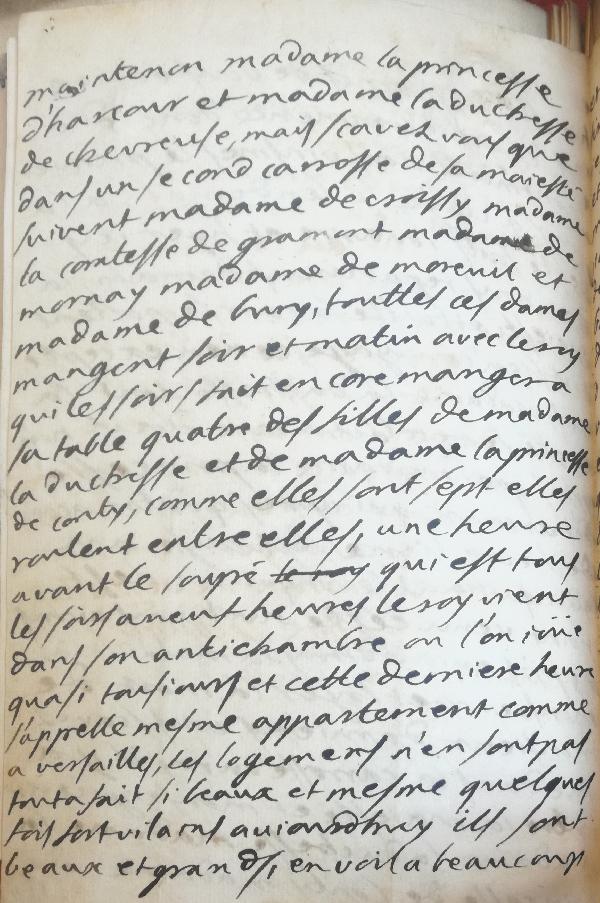 maintenon madame la princesse
d'harcour et madame la duchesse
de chevreuse, mais scavez vous que
dans un second carrosse de sa maiesté
suivent madame de croissy madame
la comtesse de gramont madame de
mornay madame de moreuil et
madame de bury, touttes ces dames
mangent soir et matin avec le roy
qui les soirs fait encore manger a
sa table quatre des filles de madame
la duchesse et de madame la princesse
de conty, comme elles sont sept elles
roulent entre elles, une heure
avant le soupé le roy qui est tous
les soirs a neuf heures le roy vient
dans son antichambre ou l'on ioüe
quasi tousiours et cette derniere heure
s'appelle mesme appartement comme
a versailles, les logemens n'en sont pas
tout a fait si beaux et mesme quelques
fois fort vilains auiourdhuy ils sont
beaux et grands, en voila beaucoup